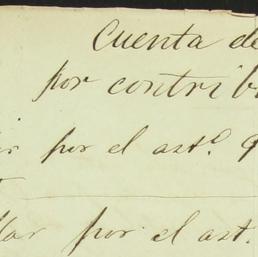 Cuenta de
por contrib
por el art.º
por el art.